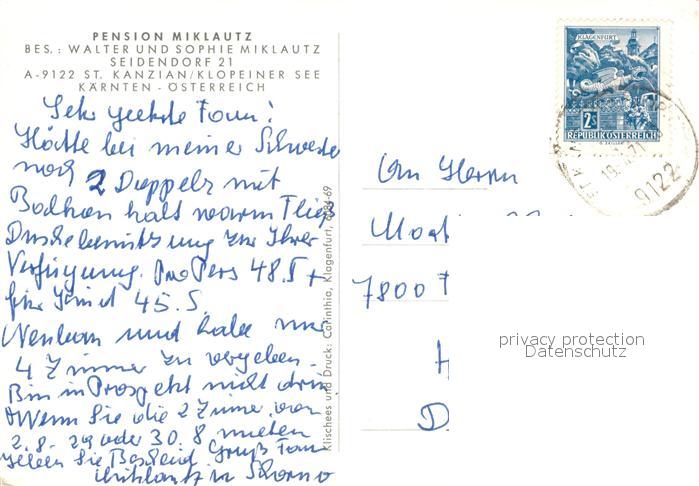 PENSION MIKLAUTZ
BES.: WALTER UND SOPHIE MIKLAUTZ
SEIDENDORF 21
A-9122 ST. KANZIAN/KLOPEINER SEE
KÄRNTEN - ÖSTERREICH
Sehr geehrte Fam!
Hätte bei meiner Schweste
noch 2 Doppelz mit
Balkon kalt warm Fließ
Duschebenützung zur Ihrer
Verfügung. Pro Pers 48.S +
für Kind 45.S.
Neubau und habe nur
4 Zimmer zu vergeben.
Bin in Prospekt nicht drin
Wenn Sie die 2 Zimmer von
2.8. - 29 oder 30.8 mieten
geben Sie Bescheid Gruß Fam
Miklautz
Klischees und Druck: Carinthia, Klagenfurt, 7084-69
KLAGENFURT
2S
REPUBLIK ÖSTERREICH
9122
An Herrn
7800
privacy protection
Datenschutz